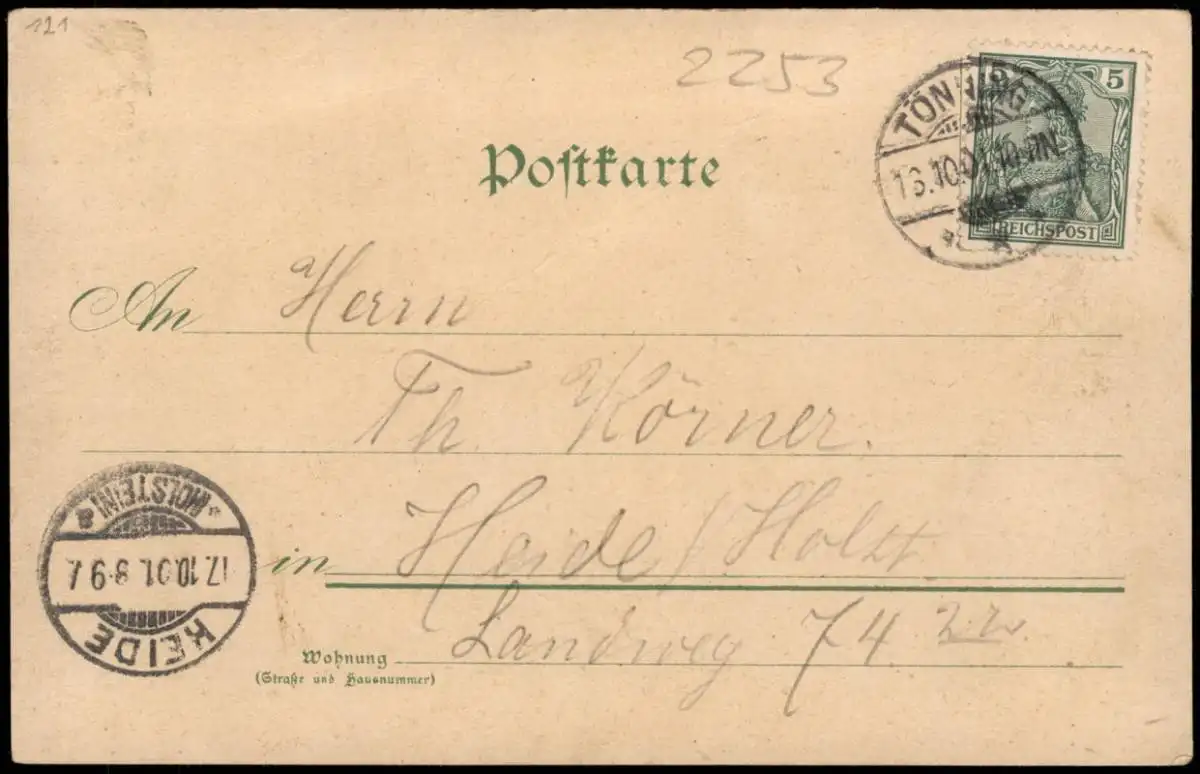 121
2253
5
TÖNNING
REICHSPOST
Postkarte
An Herrn
Th. Körner.
in Heide / Holst
Landweg 74
Wohnung
(Straße und Hausnummer)
* (HOLSTEIN)
17.10.01. 8-9 V.
HEIDE